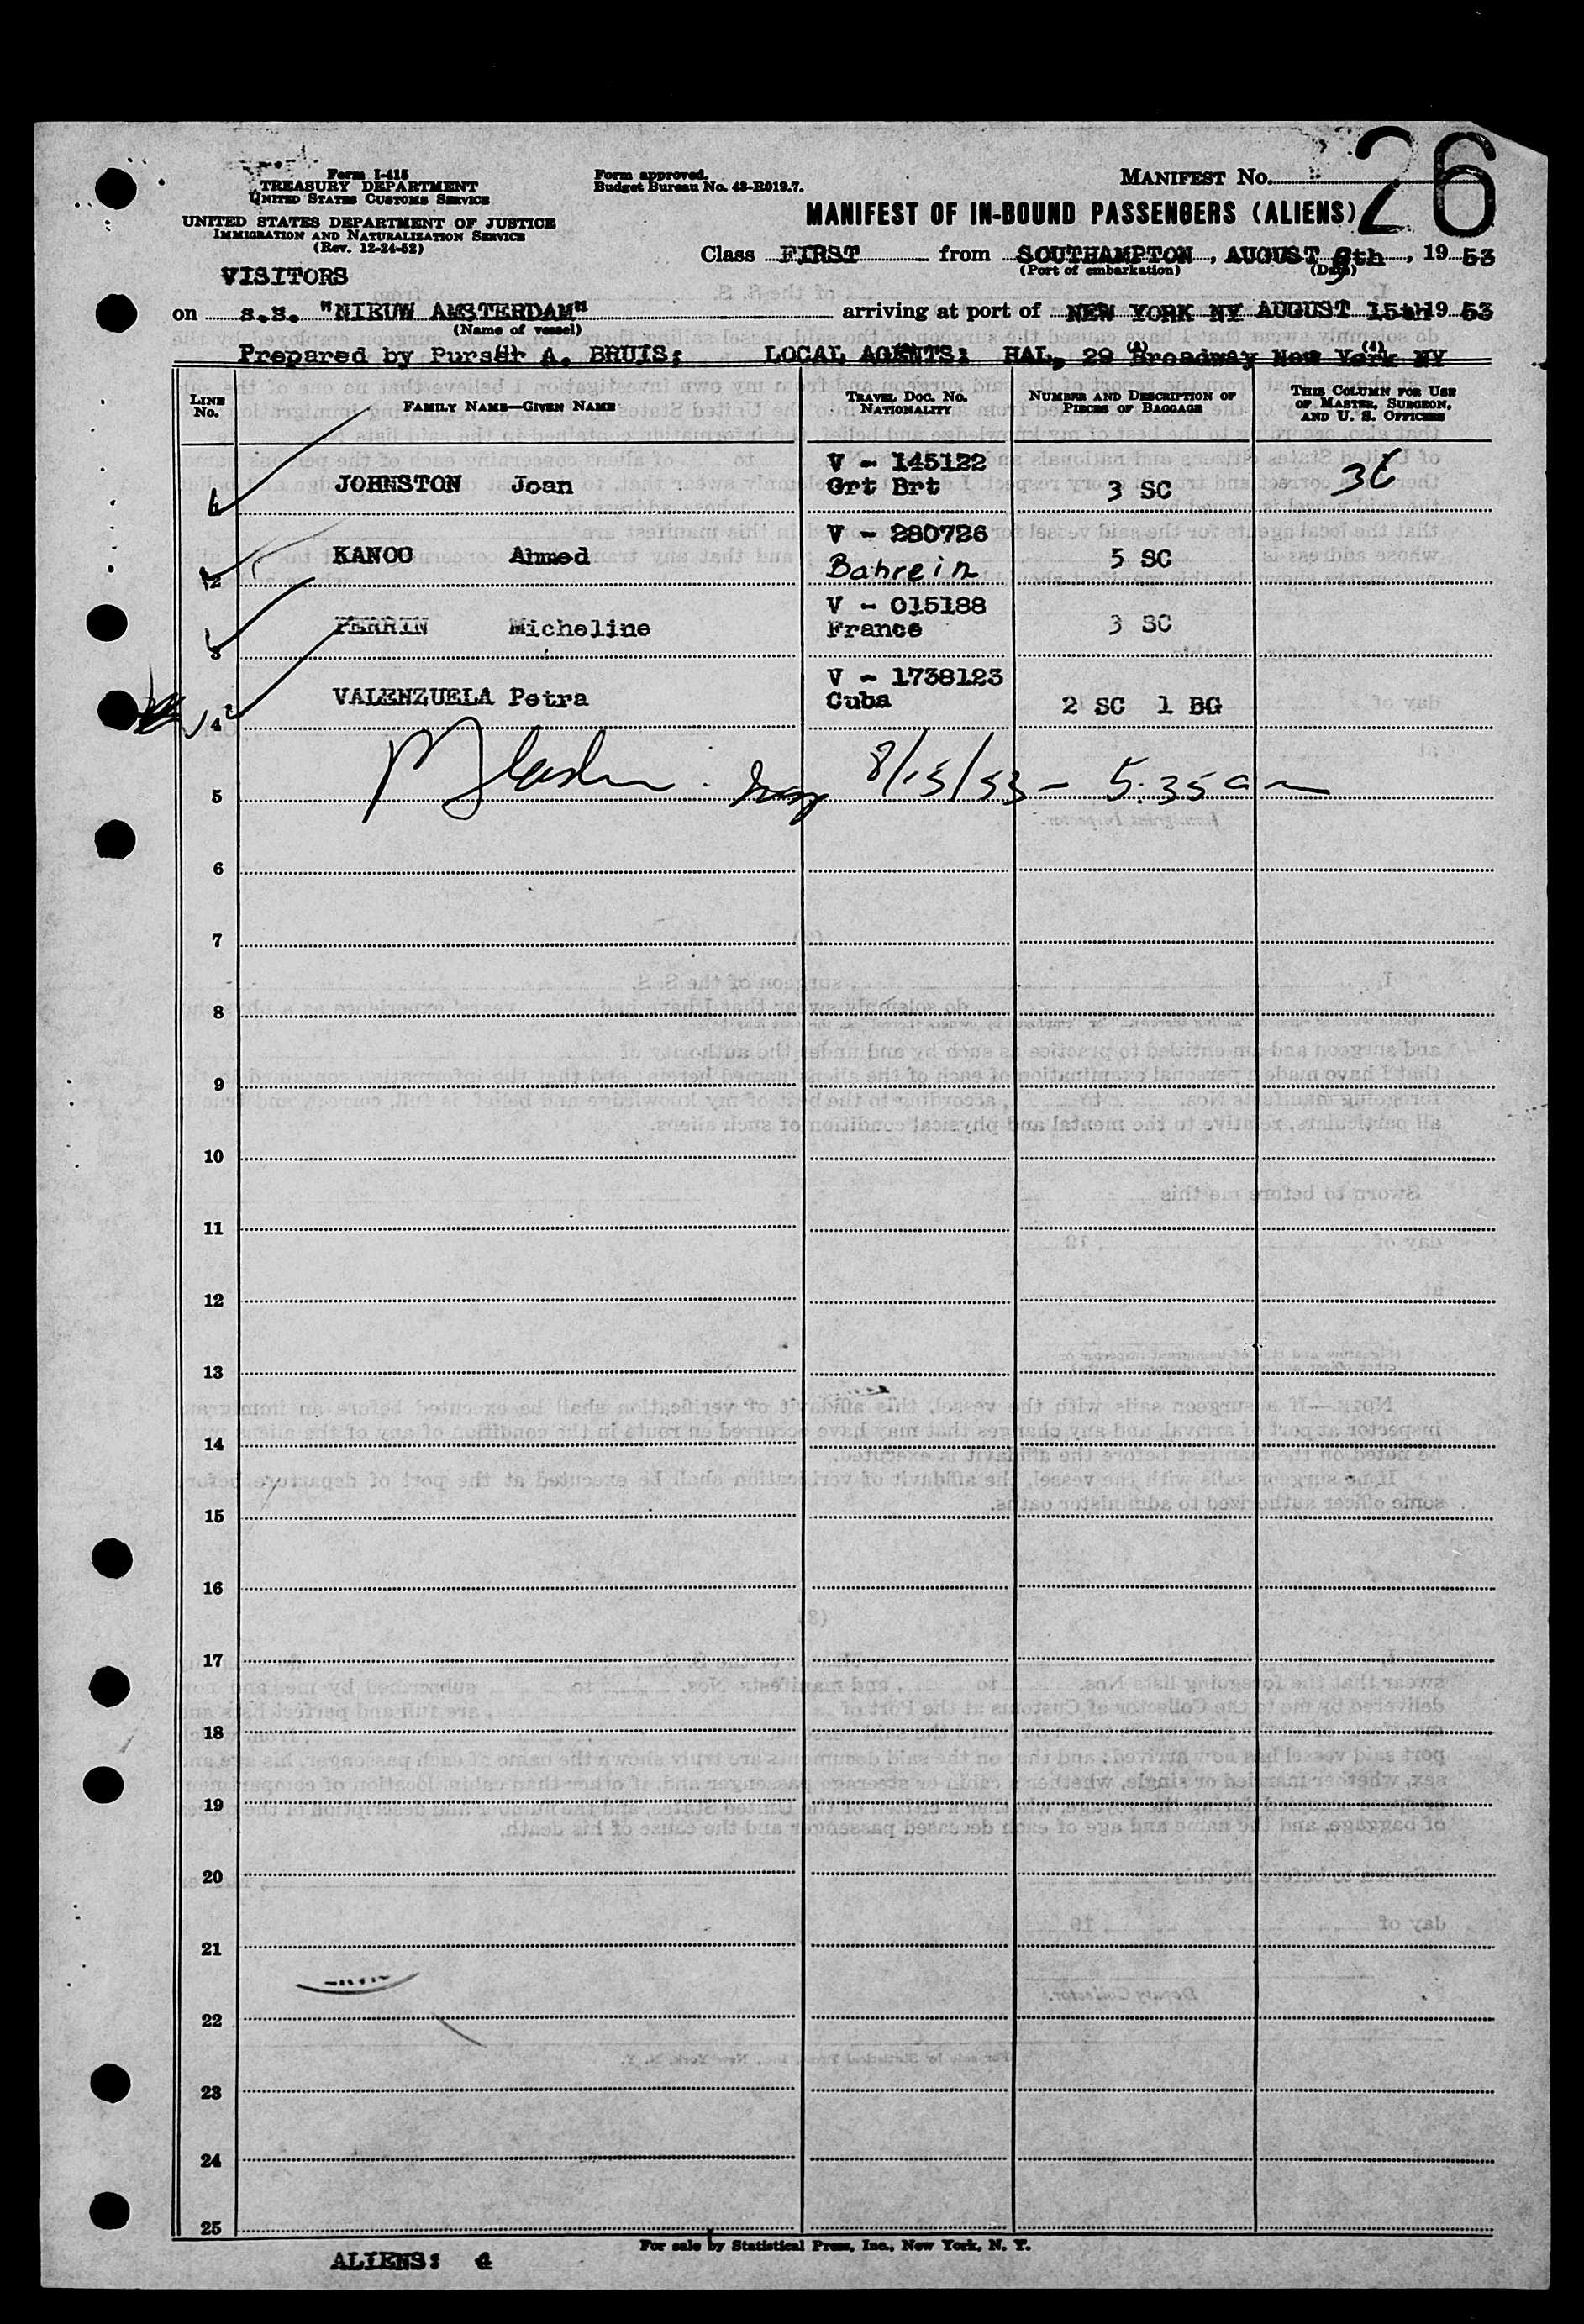 26
Form I-415
TREASURY DEPARTMENT
UNITED STATES CUSTOMS SERVICE
UNITED STATES DEPARTMENT OF JUSTICE
IMMIGRATION AND NATURALIZATION SERVICE
(Rev. 12-24-52)
Form approved.
Budget Bureau No. 43-R019.7.
MANIFEST NO.
MANIFEST OF IN-BOUND PASSENGERS (ALIENS)
Class FIRST from SOUTHAMPTON, AUGUST 9th, 19 53
(Port of embarkation) (Date)
VISITORS
on s.s. "NIEUW AMSTERDAM" arriving at port of NEW YORK NY AUGUST 15th 19 53
(Name of vessel)
Prepared by Purser A. BRUIS; LOCAL AGENTS: HAL, 29 Broadway New York NY
(3) (4)
LINE NO. FAMILY NAME—GIVEN NAME TRAVEL DOC. NO. NATIONALITY NUMBER AND DESCRIPTION OF PIECES OF BAGGAGE THIS COLUMN FOR USE OF MASTER, SURGEON, AND U. S. OFFICERS
V - 145122
1 JOHNSTON Joan Grt Brt 3 SC
V - 280726
2 KANOO Ahmed Bahrein 5 SC
V - 015188
3 PERRIN Micheline France 3 SC
V - 1738123
4 VALENZUELA Petra Cuba 2 SC 1 BG
5 8/15/53 - 5:35 am
6
7
8
9
10
11
12
13
14
15
16
17
18
19
20
21
22
23
24
25
For sale by Statistical Press, Inc., New York, N. Y.
ALIENS: 4